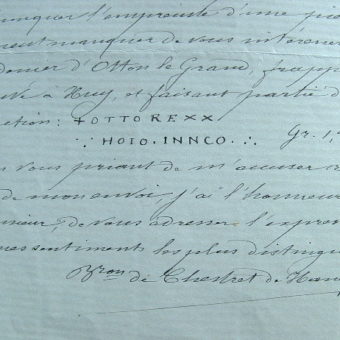 l'empreinte d'une
manquer de vous intéresser
denier d'Otton le Grand, frappé
à Huy, et faisant partie d
ction: + OTTO REXX
∵ HOIO. INNCO. ∴ Gr. 1,
vous priant de m'accuser
de mon envoi, j'ai l'honneur
de vous adresser l'expres
sentiments les plus disting
Bron de Chestret de Han